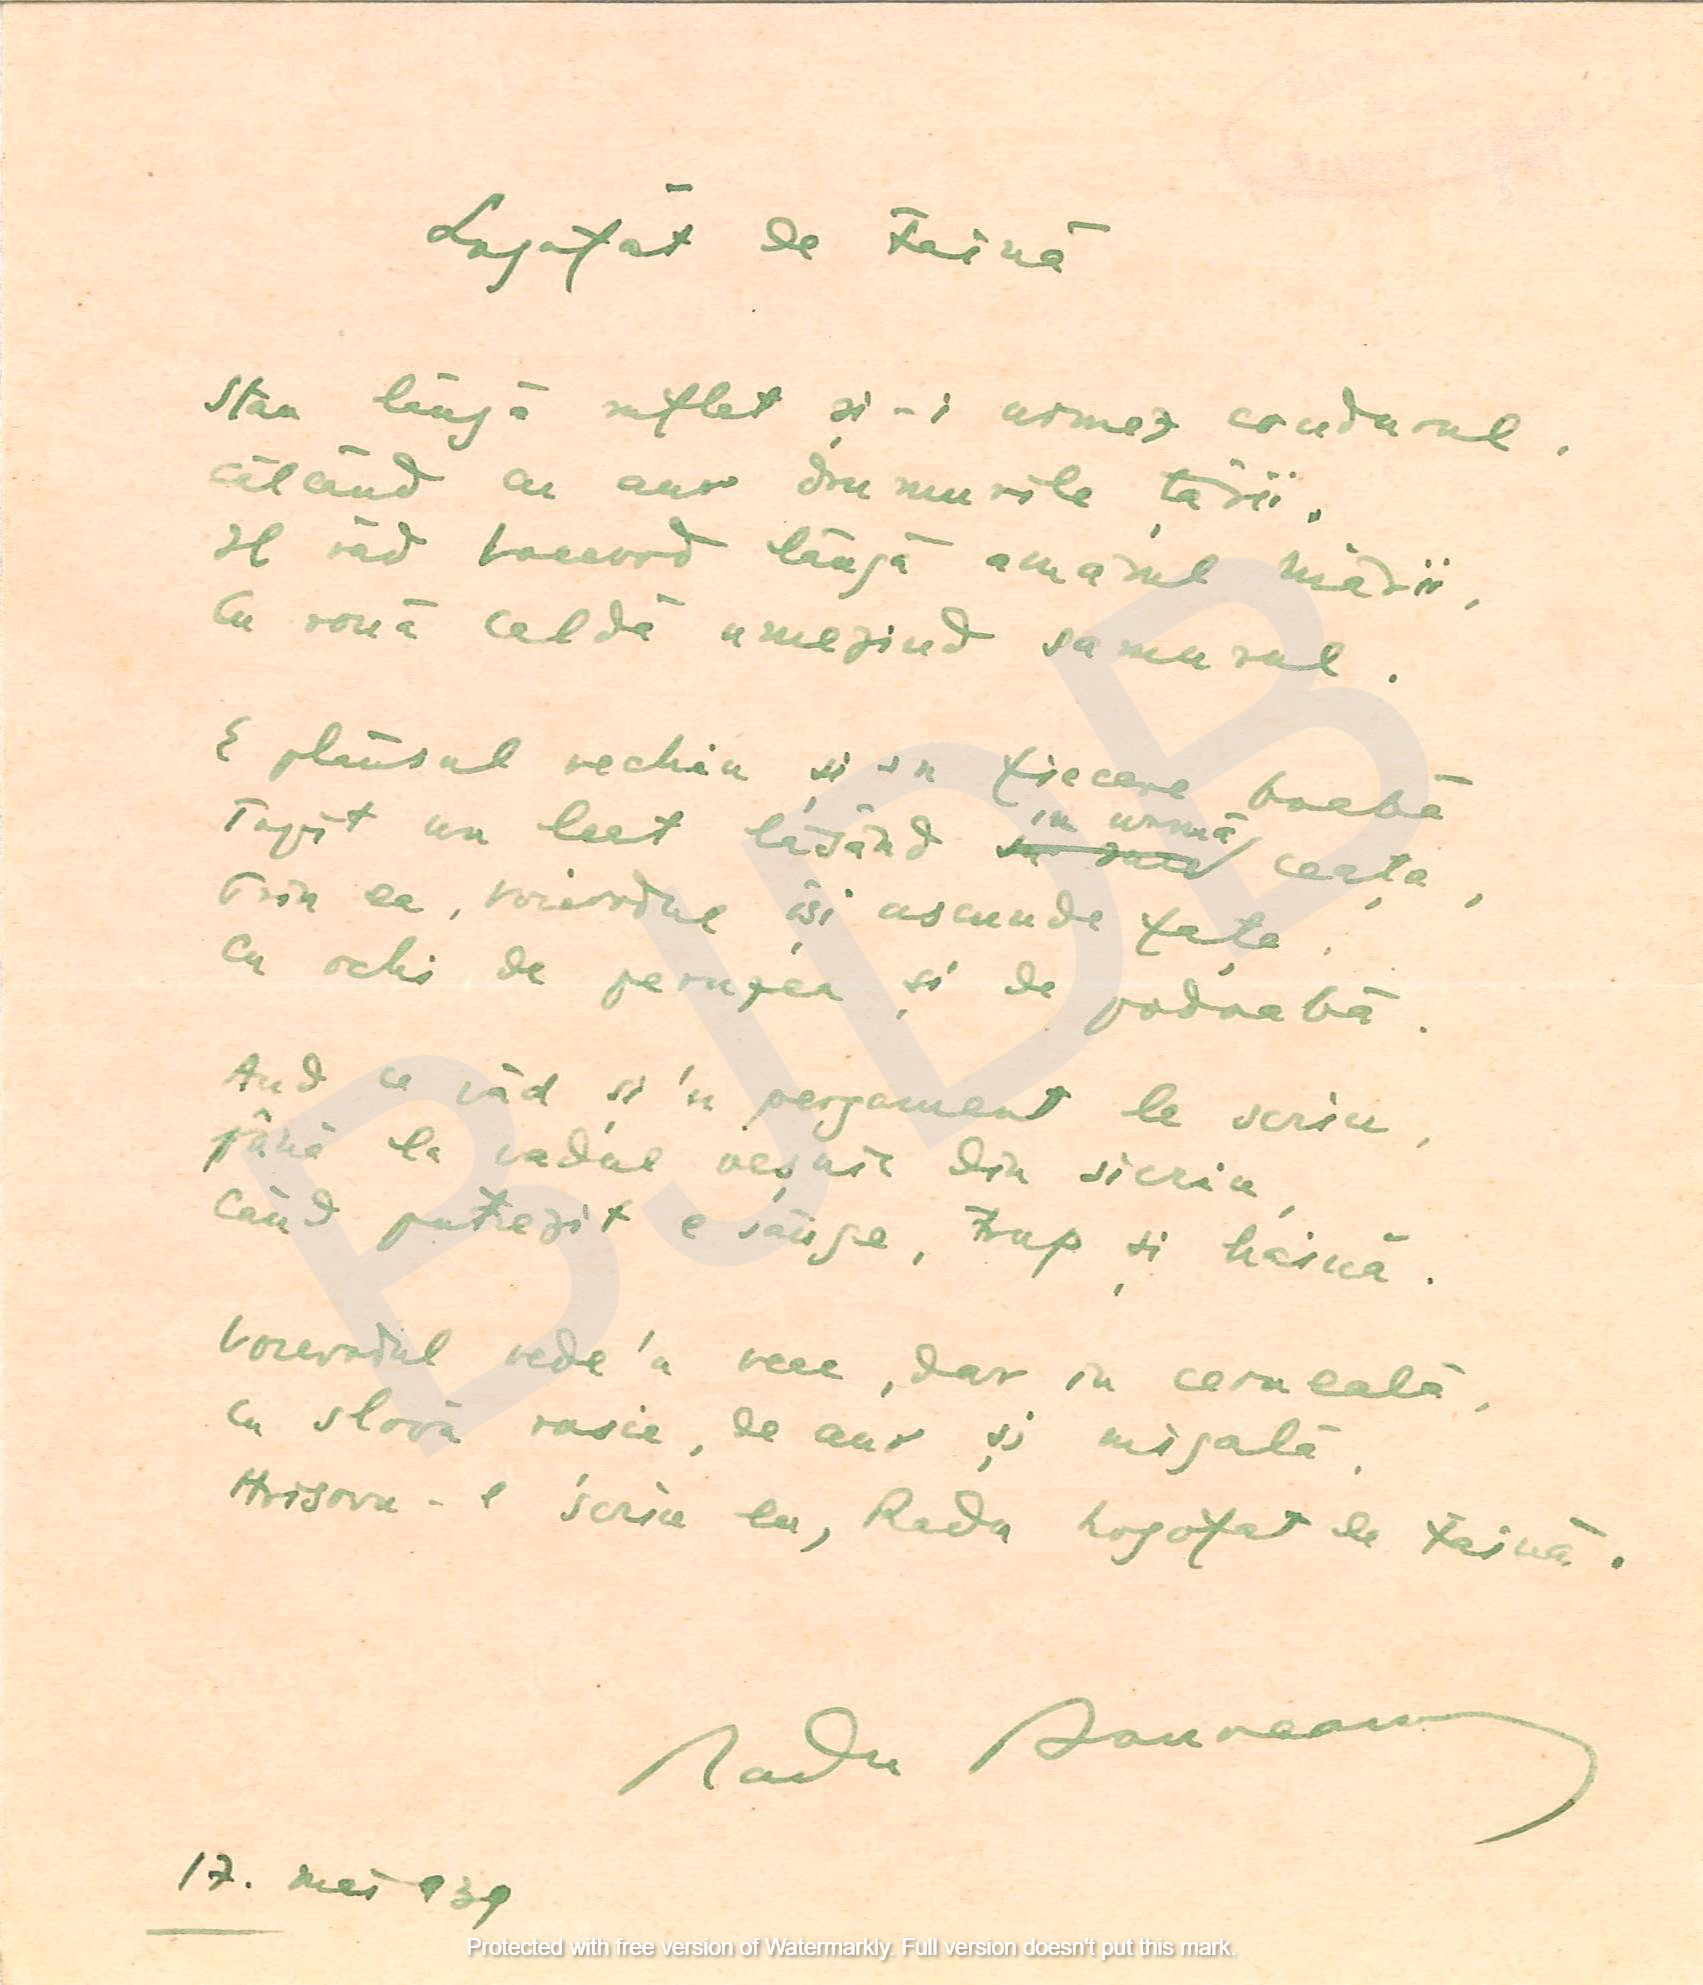 Logofăt de taină
Stau lângă suflet și-i urmez condurul,
călcând cu aur drumurile țării.
Il văd voevod lângă amarul mării,
Cu rouă caldă umezind samurul.
E plânsul vechiu și-n fiecare boabă
Topit un leat lăsând in urmă ceața,
Prin ea, voievodul își ascunde fața,
Cu ochi de peruzea și de podoabă.
Aud ce văd și'n pergament le scriu,
până la vadul veșnic din sicriu,
Când putrezit e sânge, trup și haină.
Voievodul vede'n veac, dar in cerneală,
Cu slovă rosie, de aur și migală,
Hrisovu-l scriu eu, Radu Logofat de taină.
Radu
17. mai 939
BJDB
Protected with free version of Watermarkly. Full version doesn't put this mark.